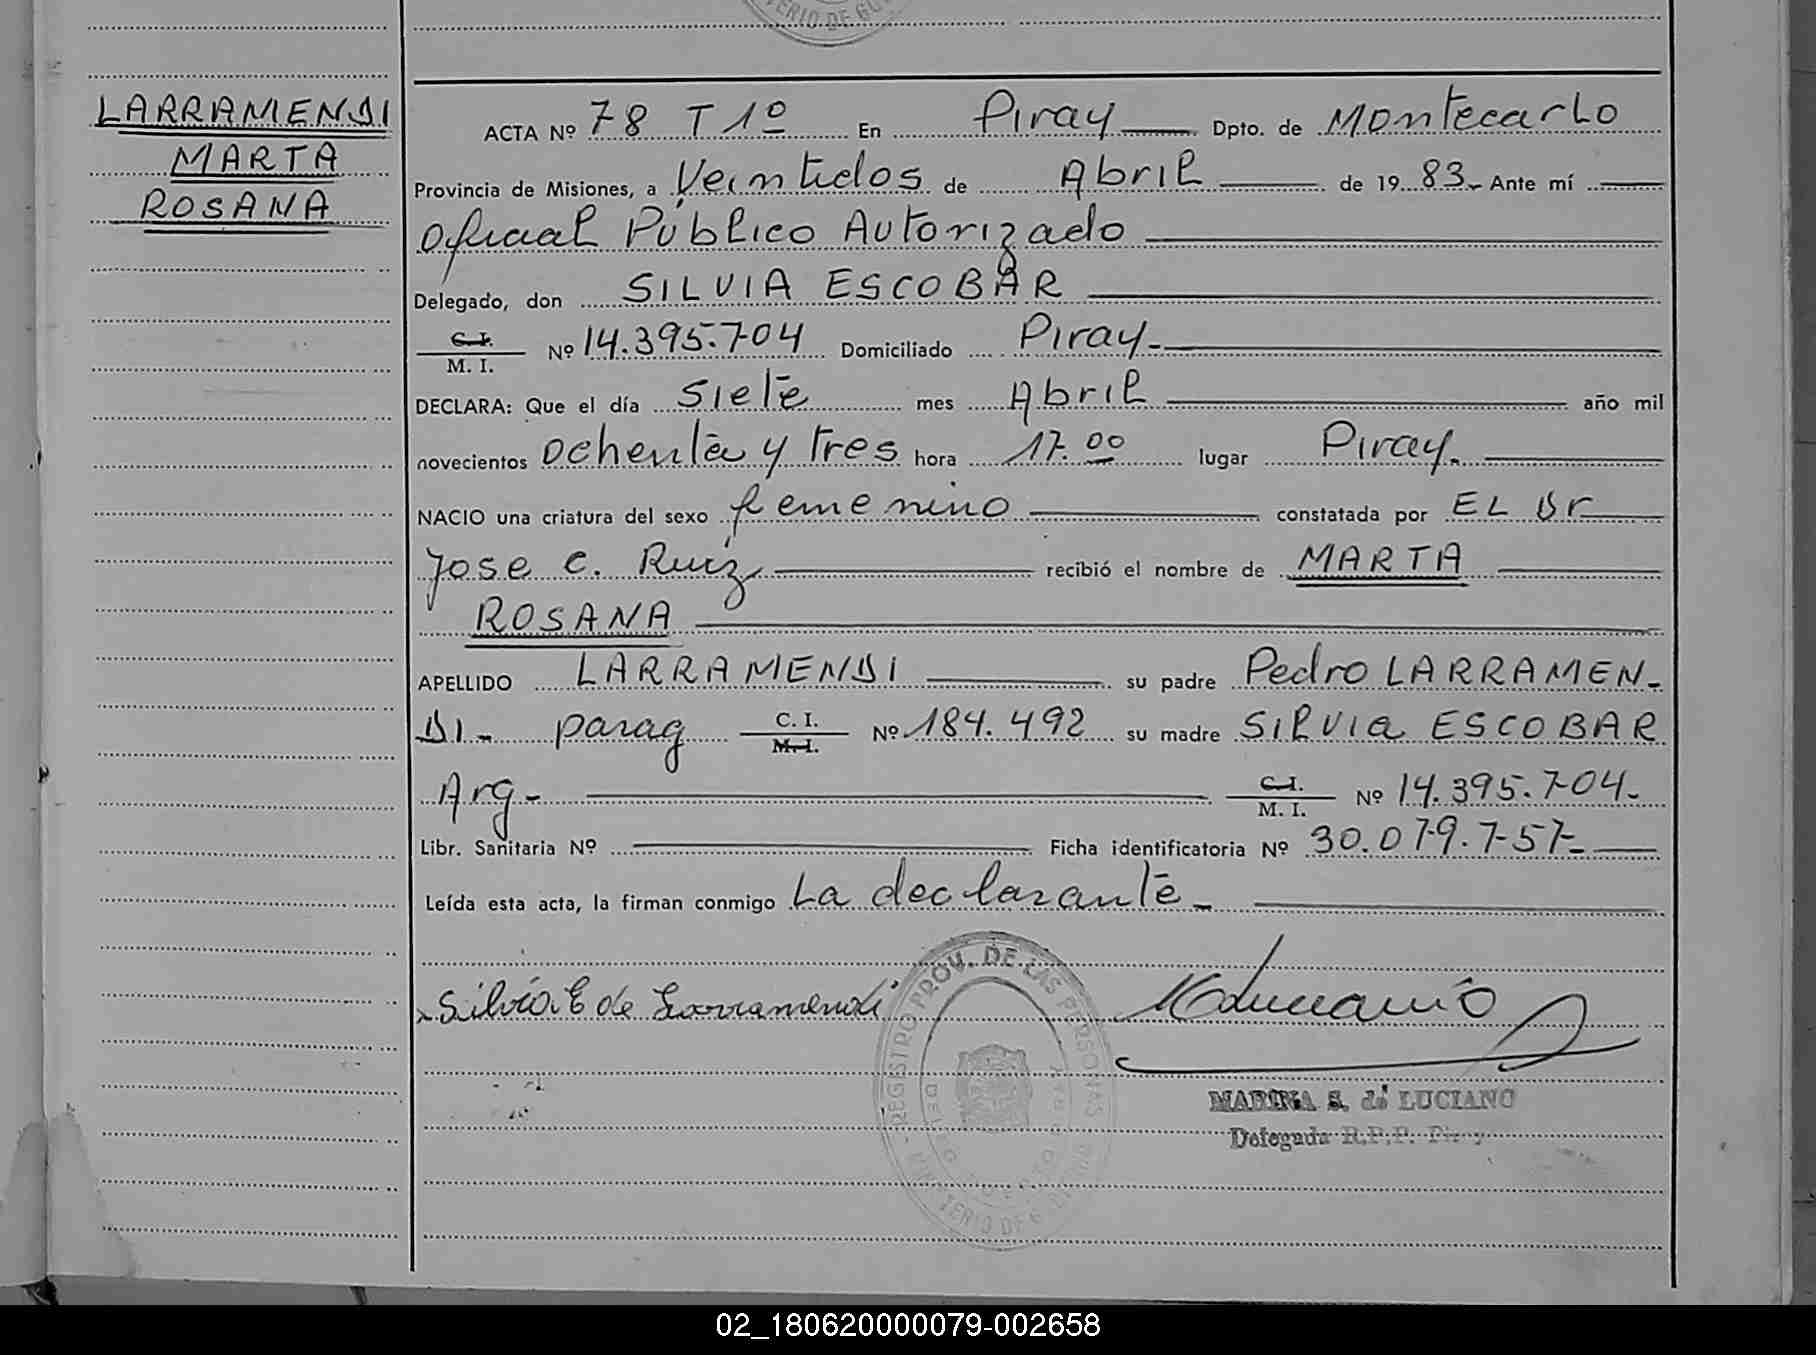 TERIO DE GU
LARRAMENDI
MARTA
ROSANA
ACTA Nº 78 T 1º En Piray Dpto. de Montecarlo
Provincia de Misiones, a Veintidos de Abril de 19 83.- Ante mí
Oficial Público Autorizado
Delegado, don SILVIA ESCOBAR
C. I.
M. I. Nº 14.395.704 Domiciliado Piray.-
DECLARA: Que el día Siete mes Abril año mil
novecientos Ochenta y tres hora 17.00 lugar Piray.
NACIO una criatura del sexo femenino constatada por EL Dr
Jose C. Ruiz recibió el nombre de MARTA
ROSANA
APELLIDO LARRAMENDI su padre Pedro LARRAMEN-
DI- parag C. I.
M. I. Nº 184.492 su madre SILVIA ESCOBAR
Arg- C. I.
M. I. Nº 14.395.704-
Libr. Sanitaria Nº Ficha identificatoria Nº 30.079.757-
Leída esta acta, la firman conmigo La declarante-
Silvia E de Larramendi
REGISTRO PROV. DE LAS PERSONAS
MARINA S. de LUCIANO
Delegada R.P.P. Piray
02_180620000079-002658